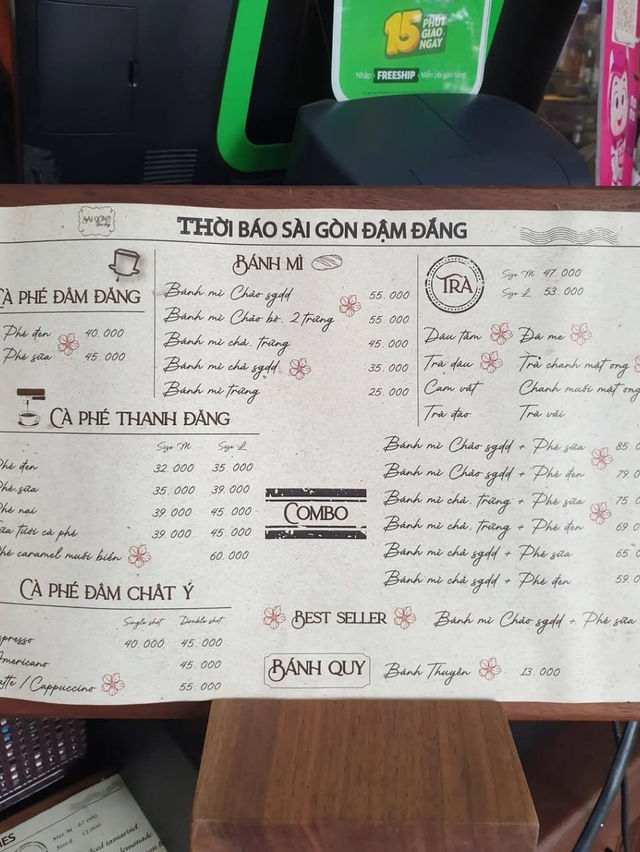 15 PHÚT GIAO NGAY
Nhập FREESHIP Miễn phí giao hàng
SÀI GÒN
THỜI BÁO SÀI GÒN ĐẬM ĐẮNG
CÀ PHÊ ĐẬM ĐẮNG
Phê đen 40.000
Phê sữa 45.000
BÁNH MÌ
Bánh mì Chảo sgdd 55.000
Bánh mì Chảo bò. 2 trứng 55.000
Bánh mì chả. trứng 45.000
Bánh mì chả sgdd 35.000
Bánh mì trứng 25.000
TRÀ
Size M 47.000
Size L 53.000
Dâu tằm Đá me
Trà dâu Trà chanh mật ong
Cam vắt Chanh muối mật ong
Trà đào Trà vải
CÀ PHÊ THANH ĐẮNG
Size M Size L
Phê đen 32.000 35.000
Phê sữa 35.000 39.000
Phê nai 39.000 45.000
Sữa tươi cà phê 39.000 45.000
Phê caramel muối biển 60.000
COMBO
Bánh mì Chảo sgdd + Phê sữa 85.0
Bánh mì Chảo sgdd + Phê đen 79.0
Bánh mì chả. trứng + Phê sữa 75.0
Bánh mì chả. trứng + Phê đen 69.0
Bánh mì chả sgdd + Phê sữa 65.0
Bánh mì chả sgdd + Phê đen 59.0
CÀ PHÊ ĐẬM CHẤT Ý
Single shot Double shot
spresso 40.000 45.000
Americano 45.000
atte / Cappuccino 55.000
BEST SELLER Bánh mì Chảo sgdd + Phê sữa
BÁNH QUY Bánh Thuyền 13.000
Size M 47.000
Size L
tamarind
lemonade